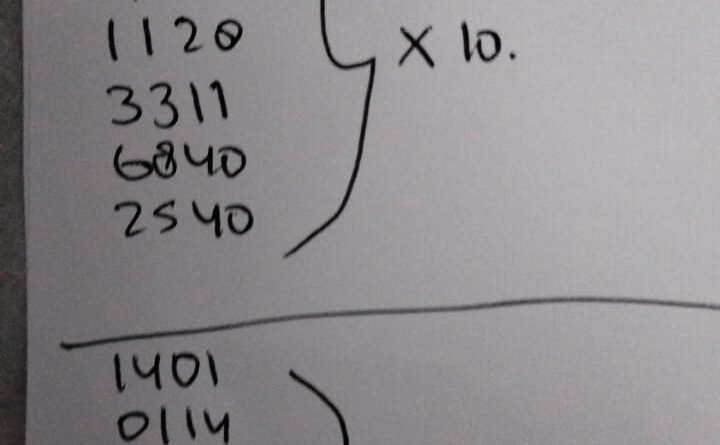 1120 x 10.
3311
6840
2540
1401
0114